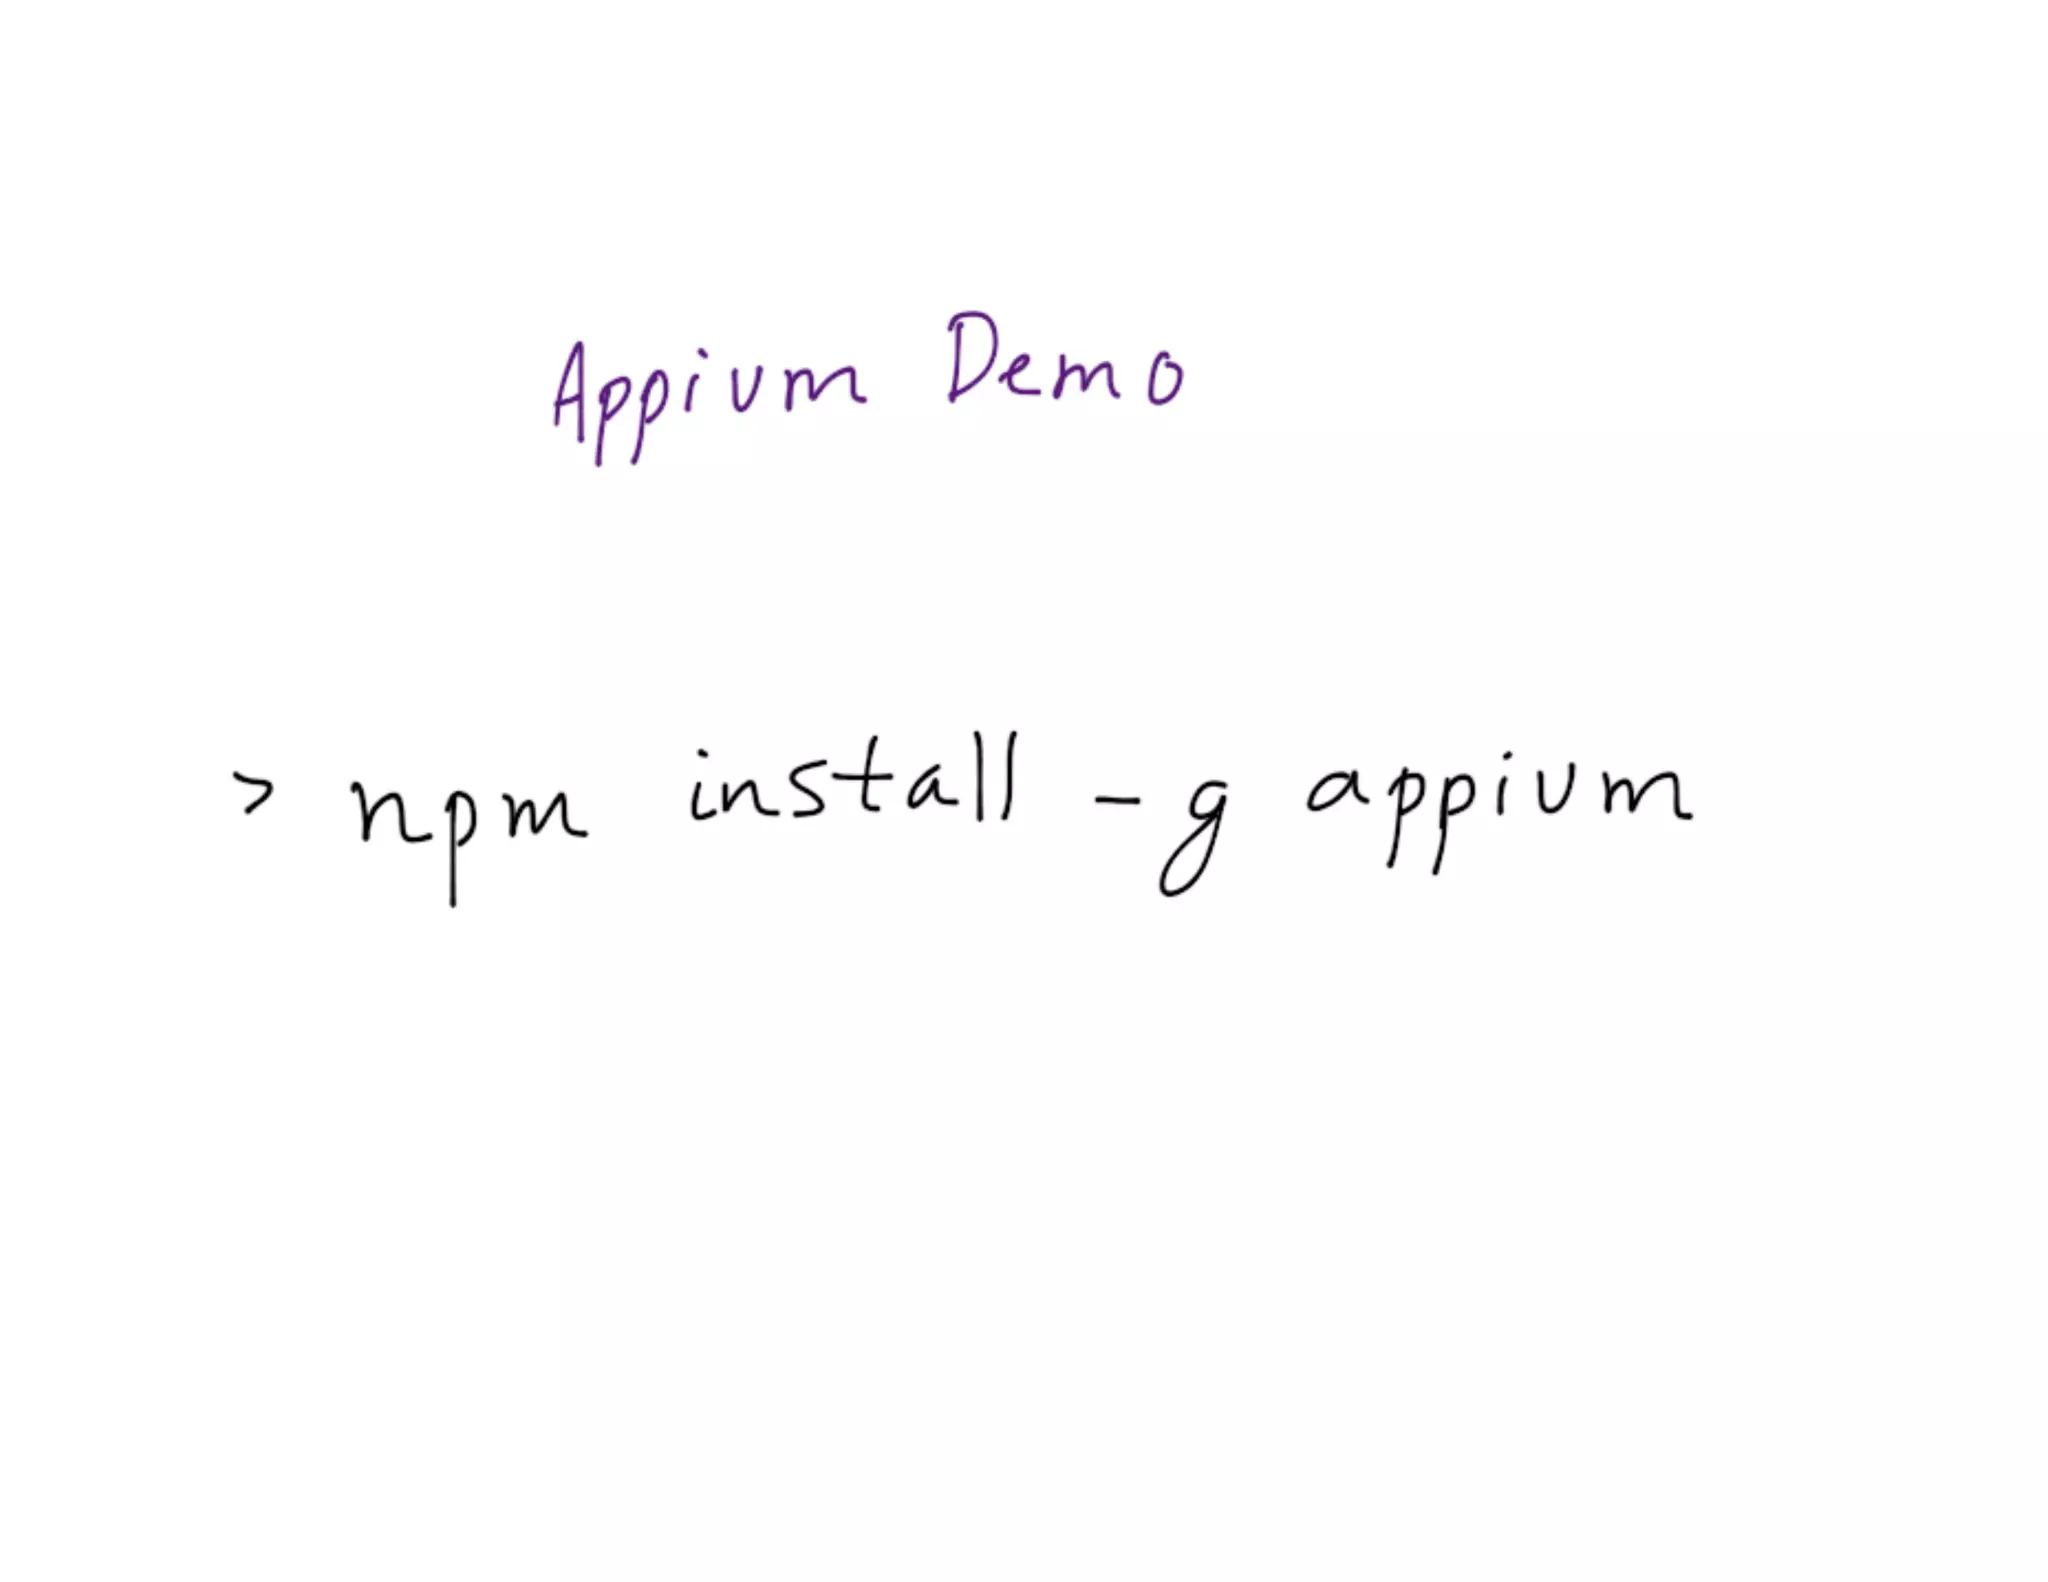 Appium Demo
> npm install -g appium